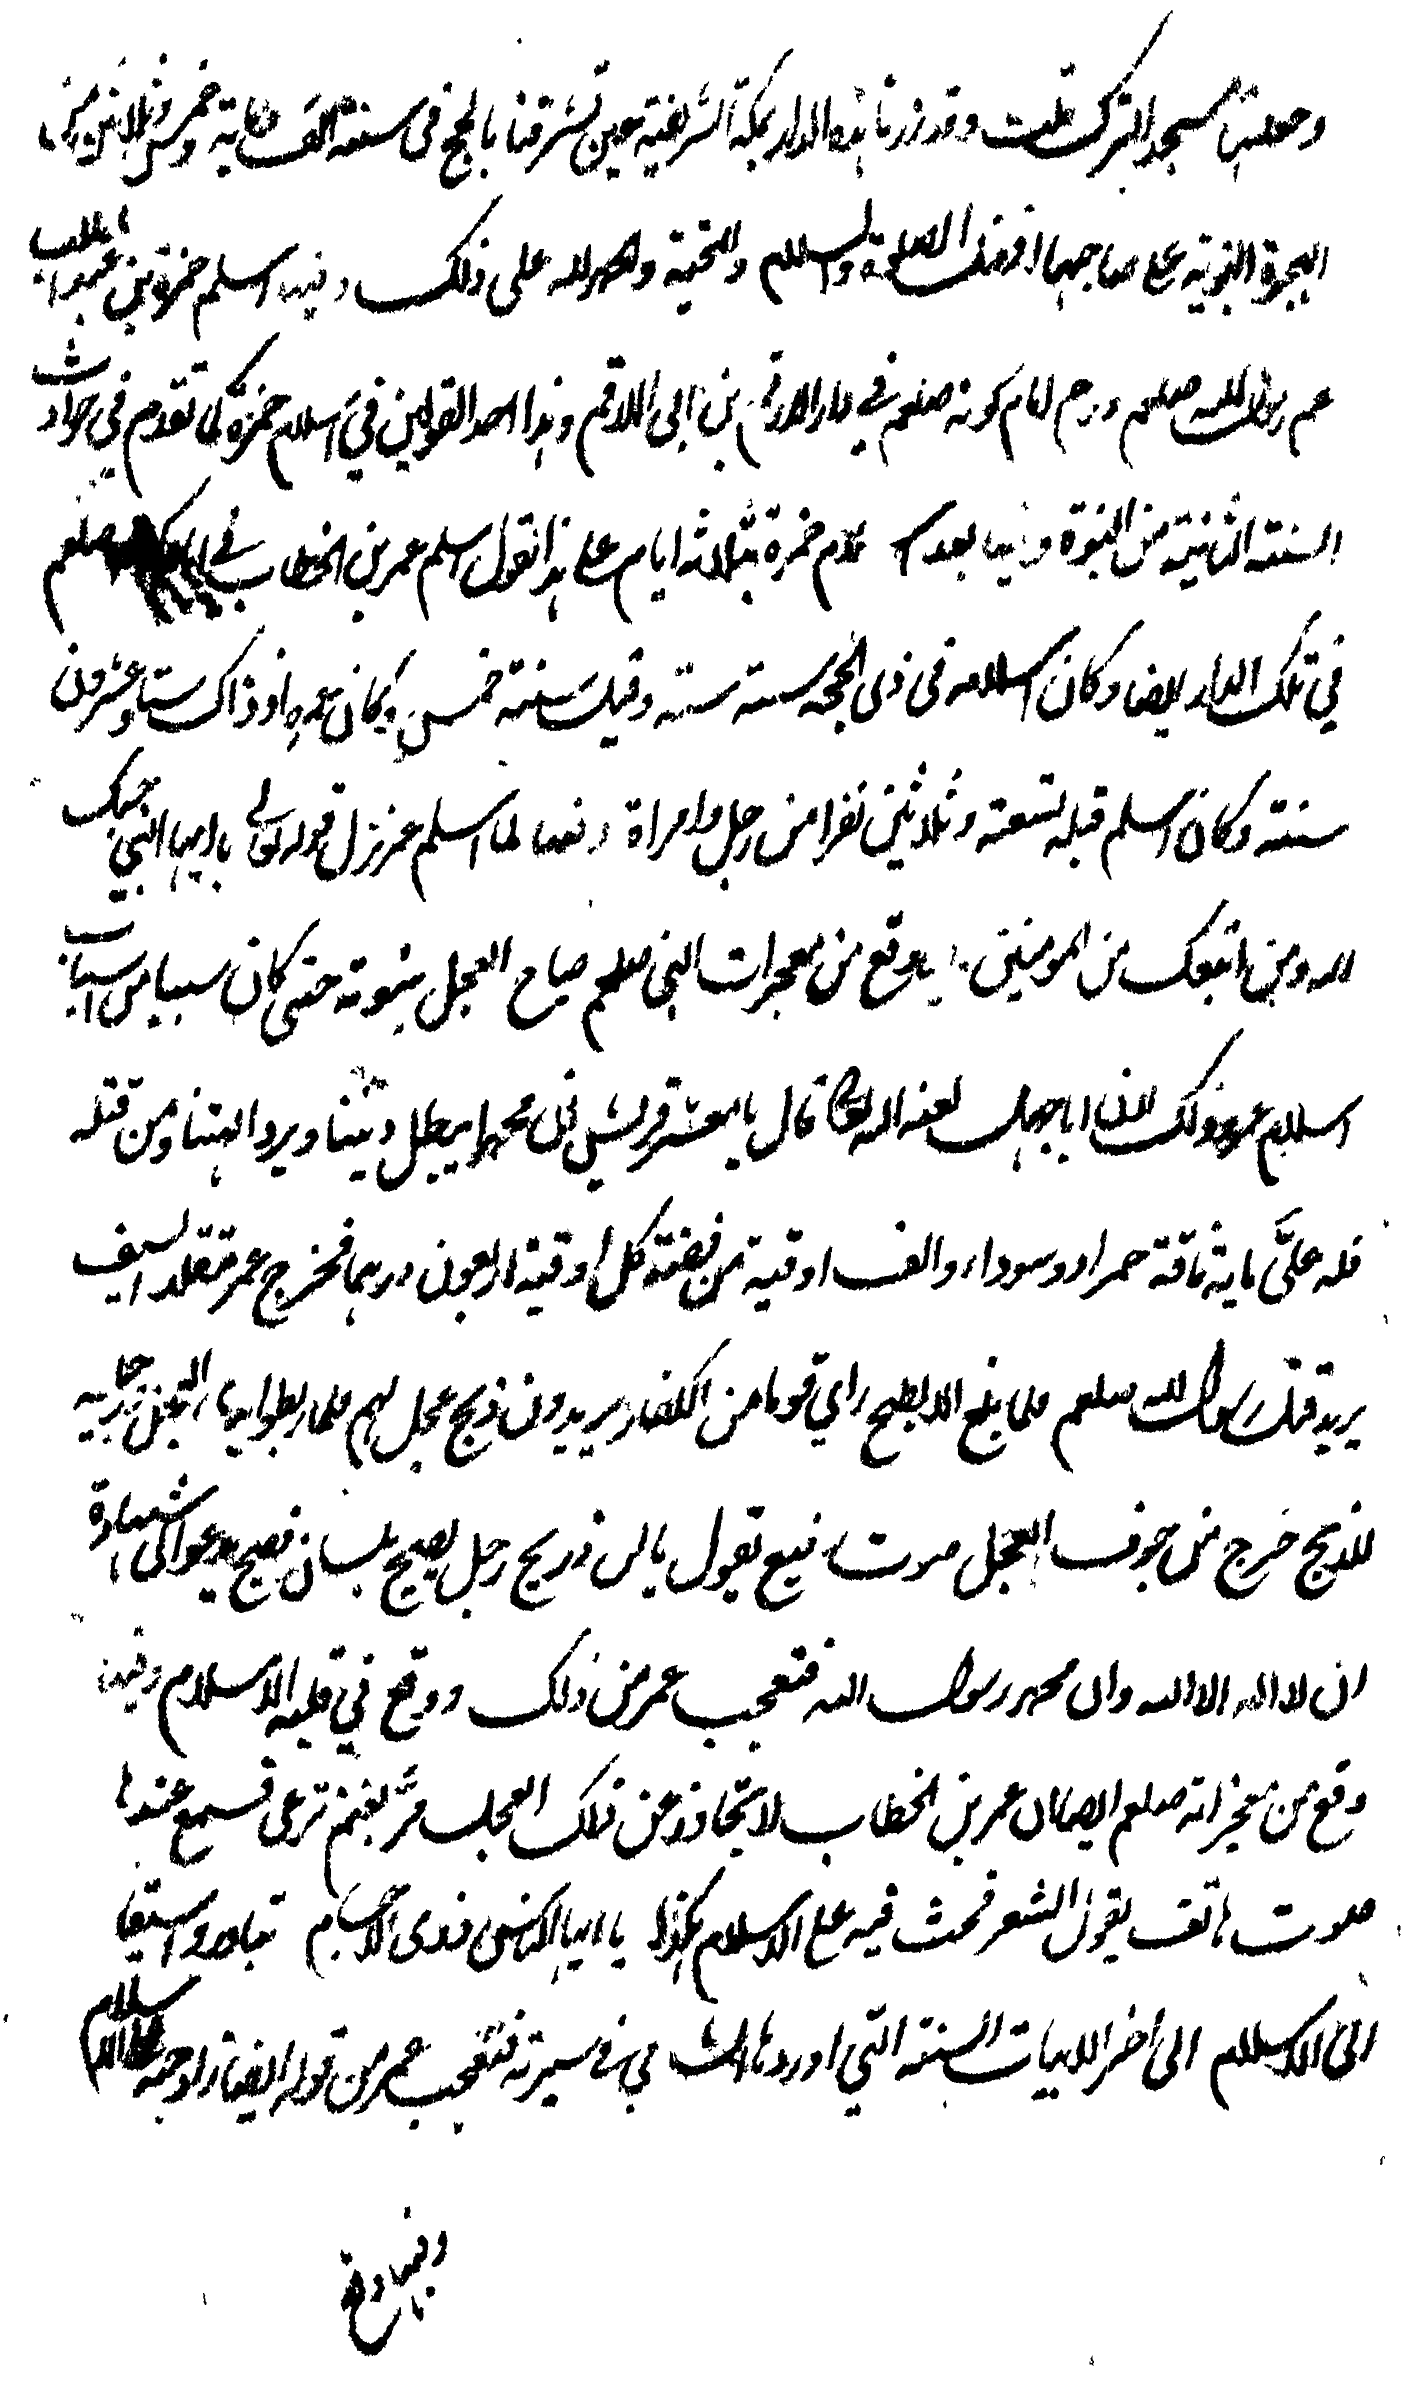 وجعلتها مسجدا لتركت قلت وقد زرنا هذه الدار بمكة الشريفة حين تشرفنا بالحج في سنة الف ومايه وخمس وثلاثين من
الهجرة النبوية على صاحبها افضل الصلوة والسلام والتحية والحمد لله على ذلك وفيها اسلم حمزة بن عبد المطلب
عم رسول الله صلعم ورم ايام كونه صلعم في دار الارقم بن ابي الارقم وهذا احد القولين في اسلام حمزة كما تقدم في حوادث
السنة الثانية من النبوة وفيها بعد اسلام حمزة بثلاثه ايام على هذا القول اسلم عمر بن الخطاب في صلعم
في تلك الدار ايضا وكان اسلامه في ذي الحجه سنة ستة وقيل سنة خمس وكان عمره اذ ذاك ستا وعشرون
سنة وكان اسلم قبله تسعة وثلاثين نفرا من رجل وامراة وفيها لما اسلم عمر نزل قوله تعالى يا ايها النبي حسبك
الله ومن اتبعك من المومنين وفيها وقع من معجزات النبي صلعم صياح العجل بنبوته حتى كان سببا من اسباب
اسلام عمر وذلك لان ابا جهل لعنه الله تعالى قال يا معشر قريش ان محمدا يبطل ديننا ويرد الهتنا ومن قتله
فله علىَّ ماية ناقة حمراء وسوداء والف اوقية من فضة كل اوقية اربعون درهما فخرج عمر متقلد السيف
يريد قتل رسول الله صلعم فلما بلغ الابطح راي قوما من الكفار يريدون ذبح عجل لهم فلما ربطوا ايها العجل
للذبح خرج من جوف العجل صوت رفيع يقول يا ال ذريح رجل يصيح بلسان فصيح يدعوا الى شهادة
ان لا اله الا الله وان محمد رسول الله فتعجب عمر من ذلك ووقع في قلبه الاسلام وفيها
وقع من معجزاته صلعم ايضا ان عمر بن الخطاب لما تجاوز عن ذلك العجل مرَّ بغنم ترعى فسمع عندها
صوت هاتف يقول الشعر فحث فيه على الاسلام هكذا يا ايها الناس ذوى الاجسام تبادروا سبقا
الى الاسلام الى اخر الابيات الستة التي اوردها الشامي في سيرته فتعجب عمر من قوله ايضا
وفيها وقع